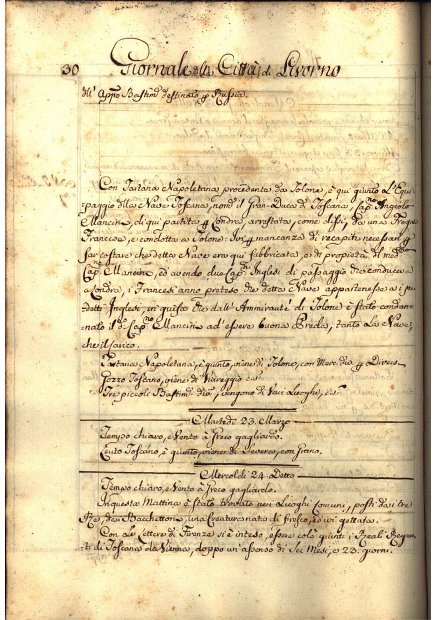 30 Giornale della Città di Livorno
dll' Appto Bastimto destinato p Russia.
Con Tartana Napoletana procedente da Tolone, è qui giunto L'Equi-
paggio dlla Nave Toscana, nomta il Gran-Duca di Toscana Capno Angiolo
Mancini, di qui partita p Londra, arrestata, come dissi, da una Fregta
Francese, e condotta a Tolone: Ivi p mancanza di recapiti necessari p
far costare che detta Nave era qui fabbricata, e di propietà di medo
Capne Mancini, ed avendo due Capni Inglesi di passaggio che conduceva
a Londra, i Francesi anno preteso che detta Nave appartenesse a i
detti Inglesi, in guisa che dall' Ammirauté di Tolone è stato condan-
nato il do Capno Mancini ad essere buona Preda, tanto La Nave,
che il carico.
Tartana Napoletana, è giunto, viene di Tolone, con Merc
Gozzo Toscano, viene di Viareggio
Tre piccoli Bastimti dio, vengono di Vaci Luoghi,
Martedì 23. Marzo
Tempo chiaro, e Vento à Greco gagliardo.
Leuto Toscano, è giunto, viene di Severes, con Grano.
Mercoldì 24. Detto
Tempo chiaro, e Vento à Greco gagliardo.
In questa Mattina è stato trovato nei Luoghi Comuni, posti da i tre
Re, dei Bacchettoni, una Creatura nata di fresco, ed ivi gettata.
Con le Lettere di Firenze si è inteso, essere colà giunti i Reali Regen-
ti di Toscana da Vienna, doppo un'assenza di Sei Mesi, e 23. giorni.